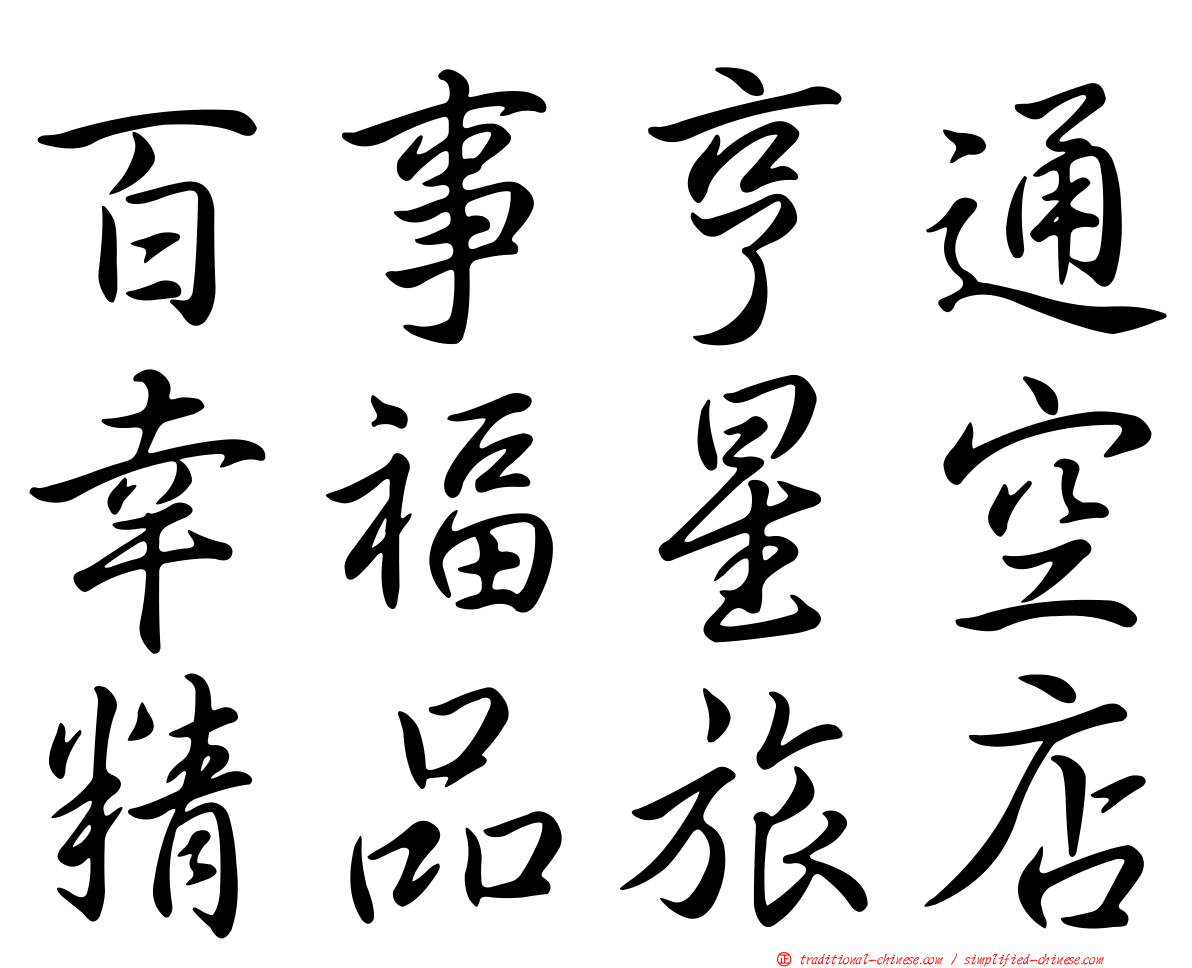 百事亨通
幸福星空
精品旅店
㊣ traditional-chinese.com / simplified-chinese.com